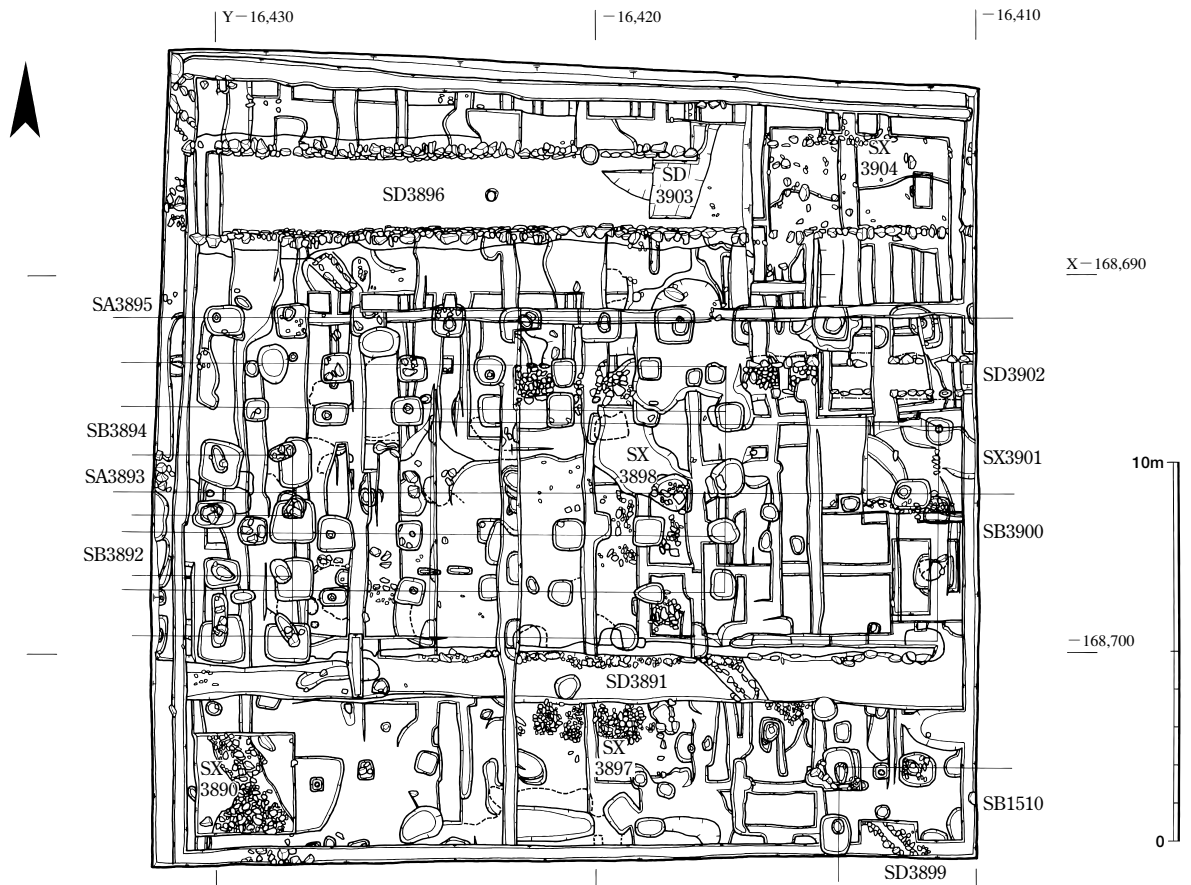 Y−16,430
−16,420
−16,410
SX
3904
SD
3903
SD3896
X−168,690
SA3895
SD3902
SB3894
SX
3898
SX3901
10m
SA3893
SB3900
SB3892
−168,700
SD3891
SX
3897
SX
3890
SB1510
0
SD3899